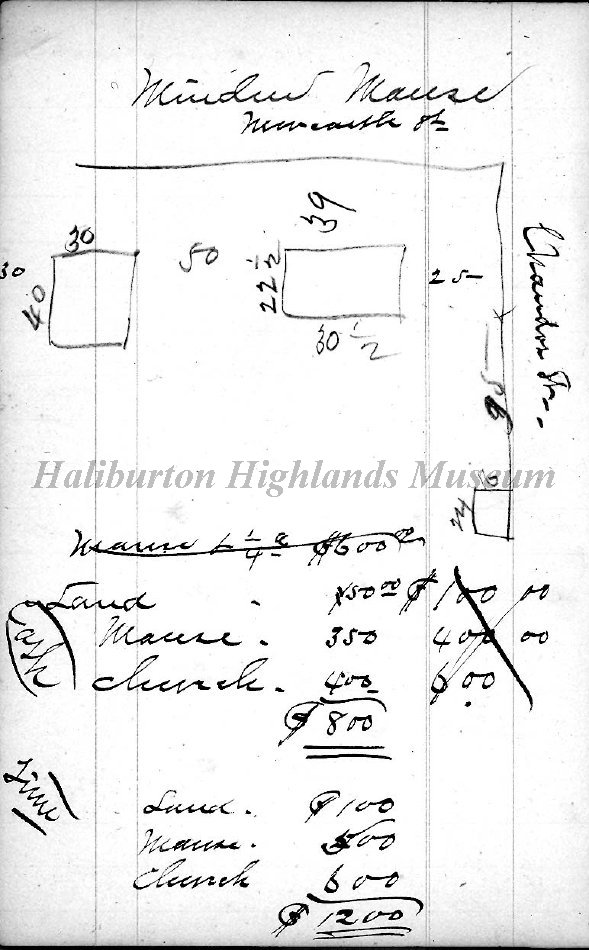 Minden Manse
Newcastle St
39
30
50
22 1/2
25
30
40
30 1/2
Chandos St.
Haliburton Highlands Museum
Manse & 1/4 a $600 00
Land . $50 00 $100 00
Cash
Manse . 350 400 00
Church . 400 600
$800
Time
Land . $100
Manse . 500
Church 600
$1200